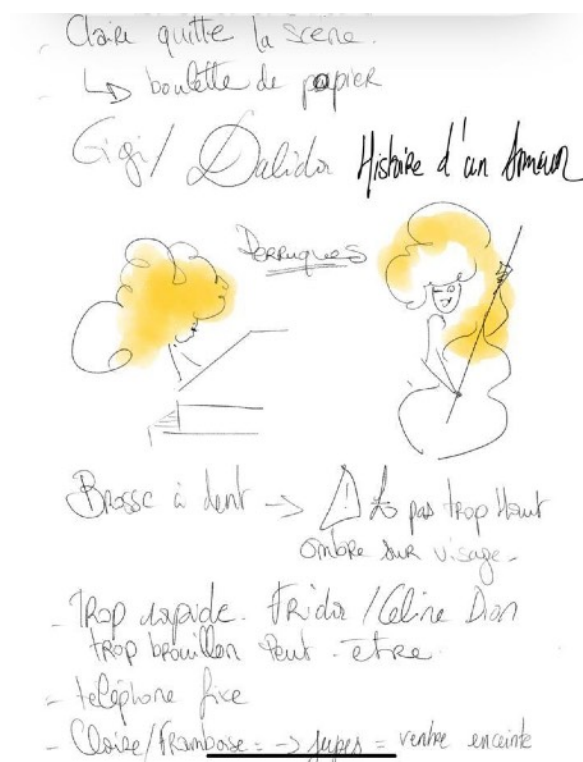 - Claire quitte la scène.
- ↳ boulette de papier
Gigi / Dalida Histoire d'un Amour
Perruques
Brosse à dent -> ⚠ pas trop Haut
ombre sur visage -
- Trop rapide. Frida / Celine Dion
trop brouillon Peut-être
- téléphone fixe
- Claire/Framboise = -> jupes = ventre enceinte